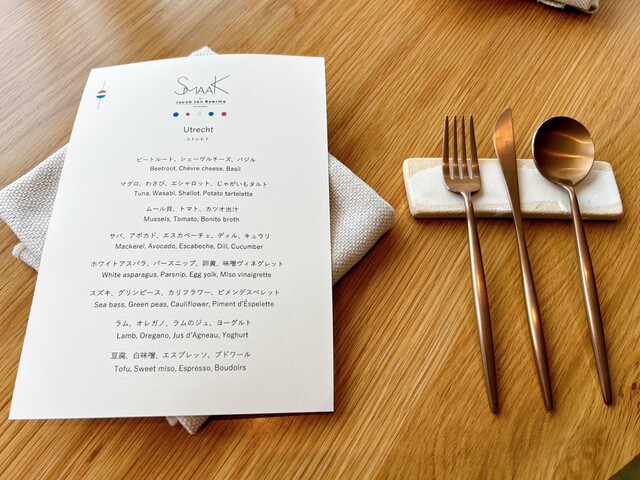 SMAAK
Jacob Jan Boerma
Utrecht
ユトレヒト
ビートルート、シェーヴルチーズ、バジル
Beetroot, Chèvre cheese, Basil
マグロ、わさび、エシャロット、じゃがいもタルト
Tuna, Wasabi, Shallot, Potato tartelette
ムール貝、トマト、カツオ出汁
Mussels, Tomato, Bonito broth
サバ、アボカド、エスカベーチェ、ディル、キュウリ
Mackerel, Avocado, Escabeche, Dill, Cucumber
ホワイトアスパラ、パースニップ、卵黄、味噌ヴィネグレット
White asparagus, Parsnip, Egg yolk, Miso vinaigrette
スズキ、グリンピース、カリフラワー、ピメンデスペレット
Sea bass, Green peas, Cauliflower, Piment d'Espelette
ラム、オレガノ、ラムのジュ、ヨーグルト
Lamb, Oregano, Jus d'Agneau, Yoghurt
豆腐、白味噌、エスプレッソ、ブドワール
Tofu, Sweet miso, Espresso, Boudoirs